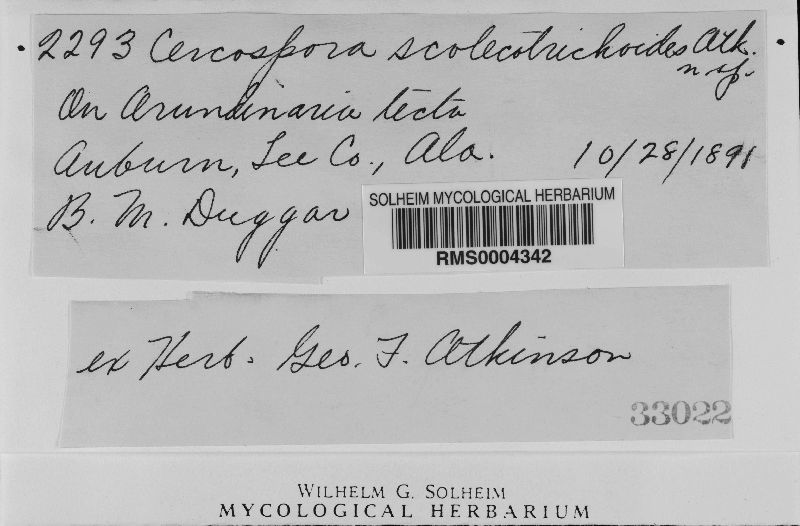 2293 Cercospora scolecotrichoides Atk.
n sp.
On Arundinaria tecta
Auburn, Lee Co., Ala. 10/28/1891
B. M. Duggar
SOLHEIM MYCOLOGICAL HERBARIUM
RMS0004342
ex Herb. Geo. F. Atkinson
33022
WILHELM G. SOLHEIM
MYCOLOGICAL HERBARIUM